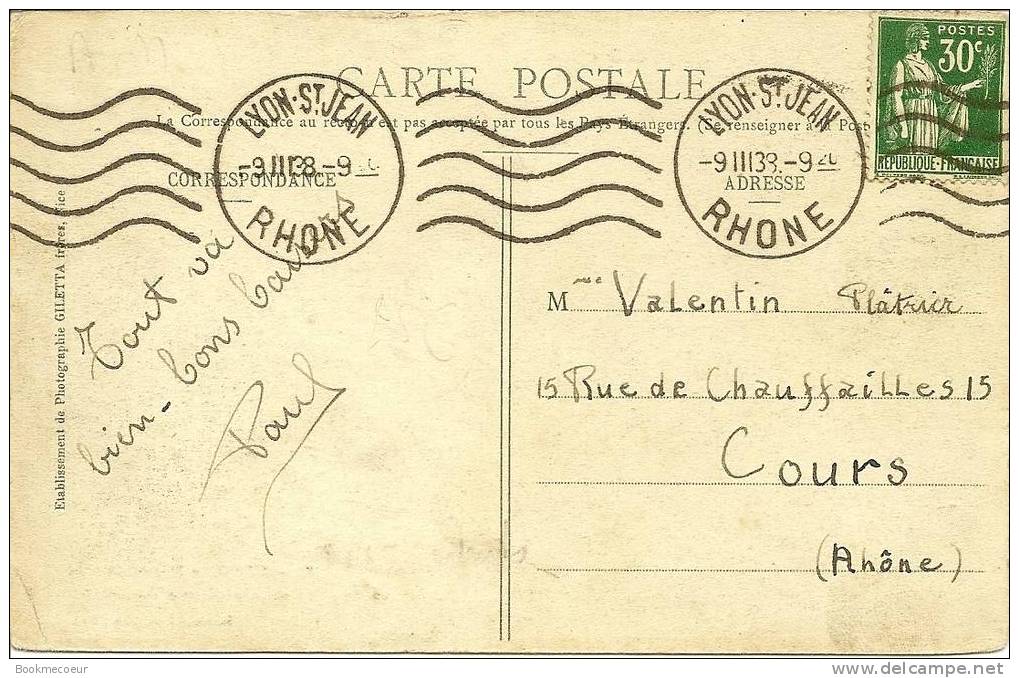 CARTE POSTALE
La Correspondance au recto n'est pas acceptée par tous les Pays Étrangers. (Se renseigner à la Post
LYON-ST JEAN
-9 III 38.-9
RHONE
LYON-ST JEAN
-9 III 38.-9
RHONE
POSTES
30c
REPUBLIQUE-FRANÇAISE
CORRESPONDANCE
ADRESSE
Tout va
bien - bons baisers
Paul
Mme Valentin Plâtrier
15 Rue de Chauffailles 15
Cours
(Rhône)
Etablissement de Photographie GILETTA frères, Nice
Bookmecoeur
delcampe.net